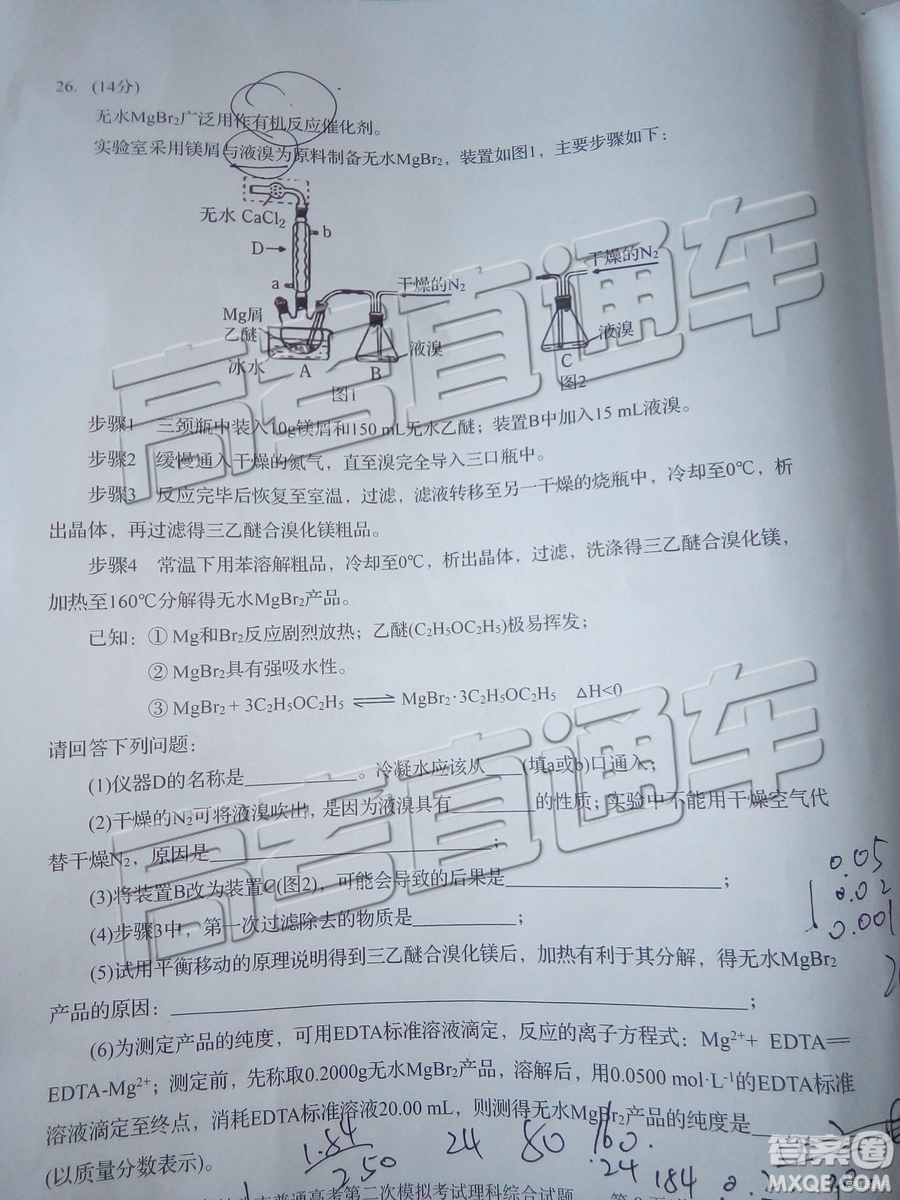 26. (14分)
无水MgBr₂广泛用作有机反应催化剂。
实验室采用镁屑与液溴为原料制备无水MgBr₂，装置如图1，主要步骤如下：
无水 CaCl₂
b
D
a
干燥的N₂
干燥的N₂
Mg屑
乙醚
冰水
A
B
液溴
C
液溴
图1
图2
步骤1 三颈瓶中装入10g镁屑和150 mL无水乙醚；装置B中加入15 mL液溴。
步骤2 缓慢通入干燥的氮气，直至溴完全导入三口瓶中。
步骤3 反应完毕后恢复至室温，过滤，滤液转移至另一干燥的烧瓶中，冷却至0℃，析
出晶体，再过滤得三乙醚合溴化镁粗品。
步骤4 常温下用苯溶解粗品，冷却至0℃，析出晶体，过滤，洗涤得三乙醚合溴化镁，
加热至160℃分解得无水MgBr₂产品。
已知：① Mg和Br₂反应剧烈放热；乙醚(C₂H₅OC₂H₅)极易挥发；
② MgBr₂具有强吸水性。
③ MgBr₂ + 3C₂H₅OC₂H₅ ⇌ MgBr₂·3C₂H₅OC₂H₅ △H<0
请回答下列问题：
(1)仪器D的名称是__________。冷凝水应该从____(填a或b)口通入；
(2)干燥的N₂可将液溴吹出，是因为液溴具有________的性质；实验中不能用干燥空气代
替干燥N₂，原因是__________________________；
(3)将装置B改为装置C(图2)，可能会导致的后果是____________________；
(4)步骤3中，第一次过滤除去的物质是__________；
(5)试用平衡移动的原理说明得到三乙醚合溴化镁后，加热有利于其分解，得无水MgBr₂
产品的原因：__________________________________________________；
(6)为测定产品的纯度，可用EDTA标准溶液滴定，反应的离子方程式：Mg²⁺+ EDTA═
EDTA-Mg²⁺；测定前，先称取0.2000g无水MgBr₂产品，溶解后，用0.0500 mol·L⁻¹的EDTA标准
溶液滴定至终点，消耗EDTA标准溶液20.00 mL，则测得无水MgBr₂产品的纯度是________
(以质量分数表示)。
0.05
0.02
0.001
1.84
2.50
24
80
160
24
184
普通高考第二次模拟考试理科综合试题
高考直通车
高考直通车
答案圈
MXQE.COM